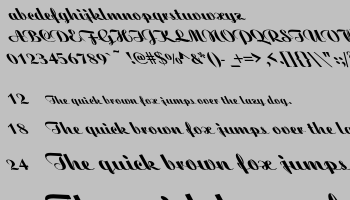 abcdefghijklmnopqrstuvwxyz
ABCDEFGHIJKLMNOPQRSTUVW
0123456789¨~ !@#$%^&*()- _+=> ,<.[]{}|\ ":;/
12 The quick brown fox jumps over the lazy dog.
18 The quick brown fox jumps over the la
24 The quick brown fox jumps